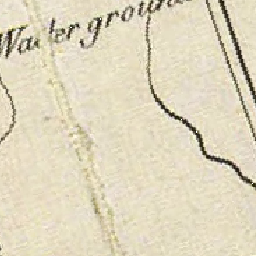 Wader ground